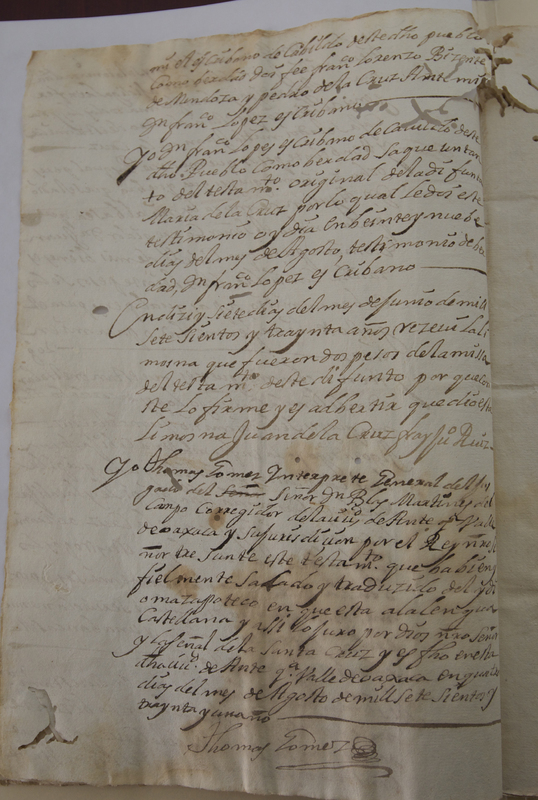 mi el esCribano de Cabildo deste dho pueblo
Como berdad doi fee franco Lorenzo Bizente
de Mendoza y pedro de la Cruz Ante mi
Dn franco Lopez esCribano
Yo Dn franco Lopes esCribano de Cavildo deste
dho Pueblo Como berdad Saque un tan
to del testamto original de la difunta
Maria de la Cruz por lo qual le doi este
testimonio oy dia En beinte y nuebe
dias del mes de Agosto, testimonio de ber
dad, Dn franco Lopez esCribano
En diziysiete dias del mes de Junio de mill
Sete Sientos y traynta años rezevi la li
mosna que fueron dos pesos de la missa
del testamto deste difunto por que Con
ste Lo firme y es adbertir que dio esta
Limosna Juan de la Cruz fray Ju Ruiz
Yo Thomas Gomez Ynterprete General del Jus
gado del Señor Dn Blas Martines del
Campo Corregidor de la ciud de Ante qa Valle
de oaxaca y Su jurisdicion por el Rey nro Se
ñor tresunte este testamto que ha bien y
fielmente Sacado y traduzido del ydi
oma zapoteco en que esta a la lengua
Castellana y assi lo juro por Dios nro Señor
y la Señal de la Santa Cruz y es fho en esta
dha ciud de Ante qa Valle de oaxaca en
dias del mes de Agosto de mill Sete Sientos y
traynta y un año
Thomas Gomez